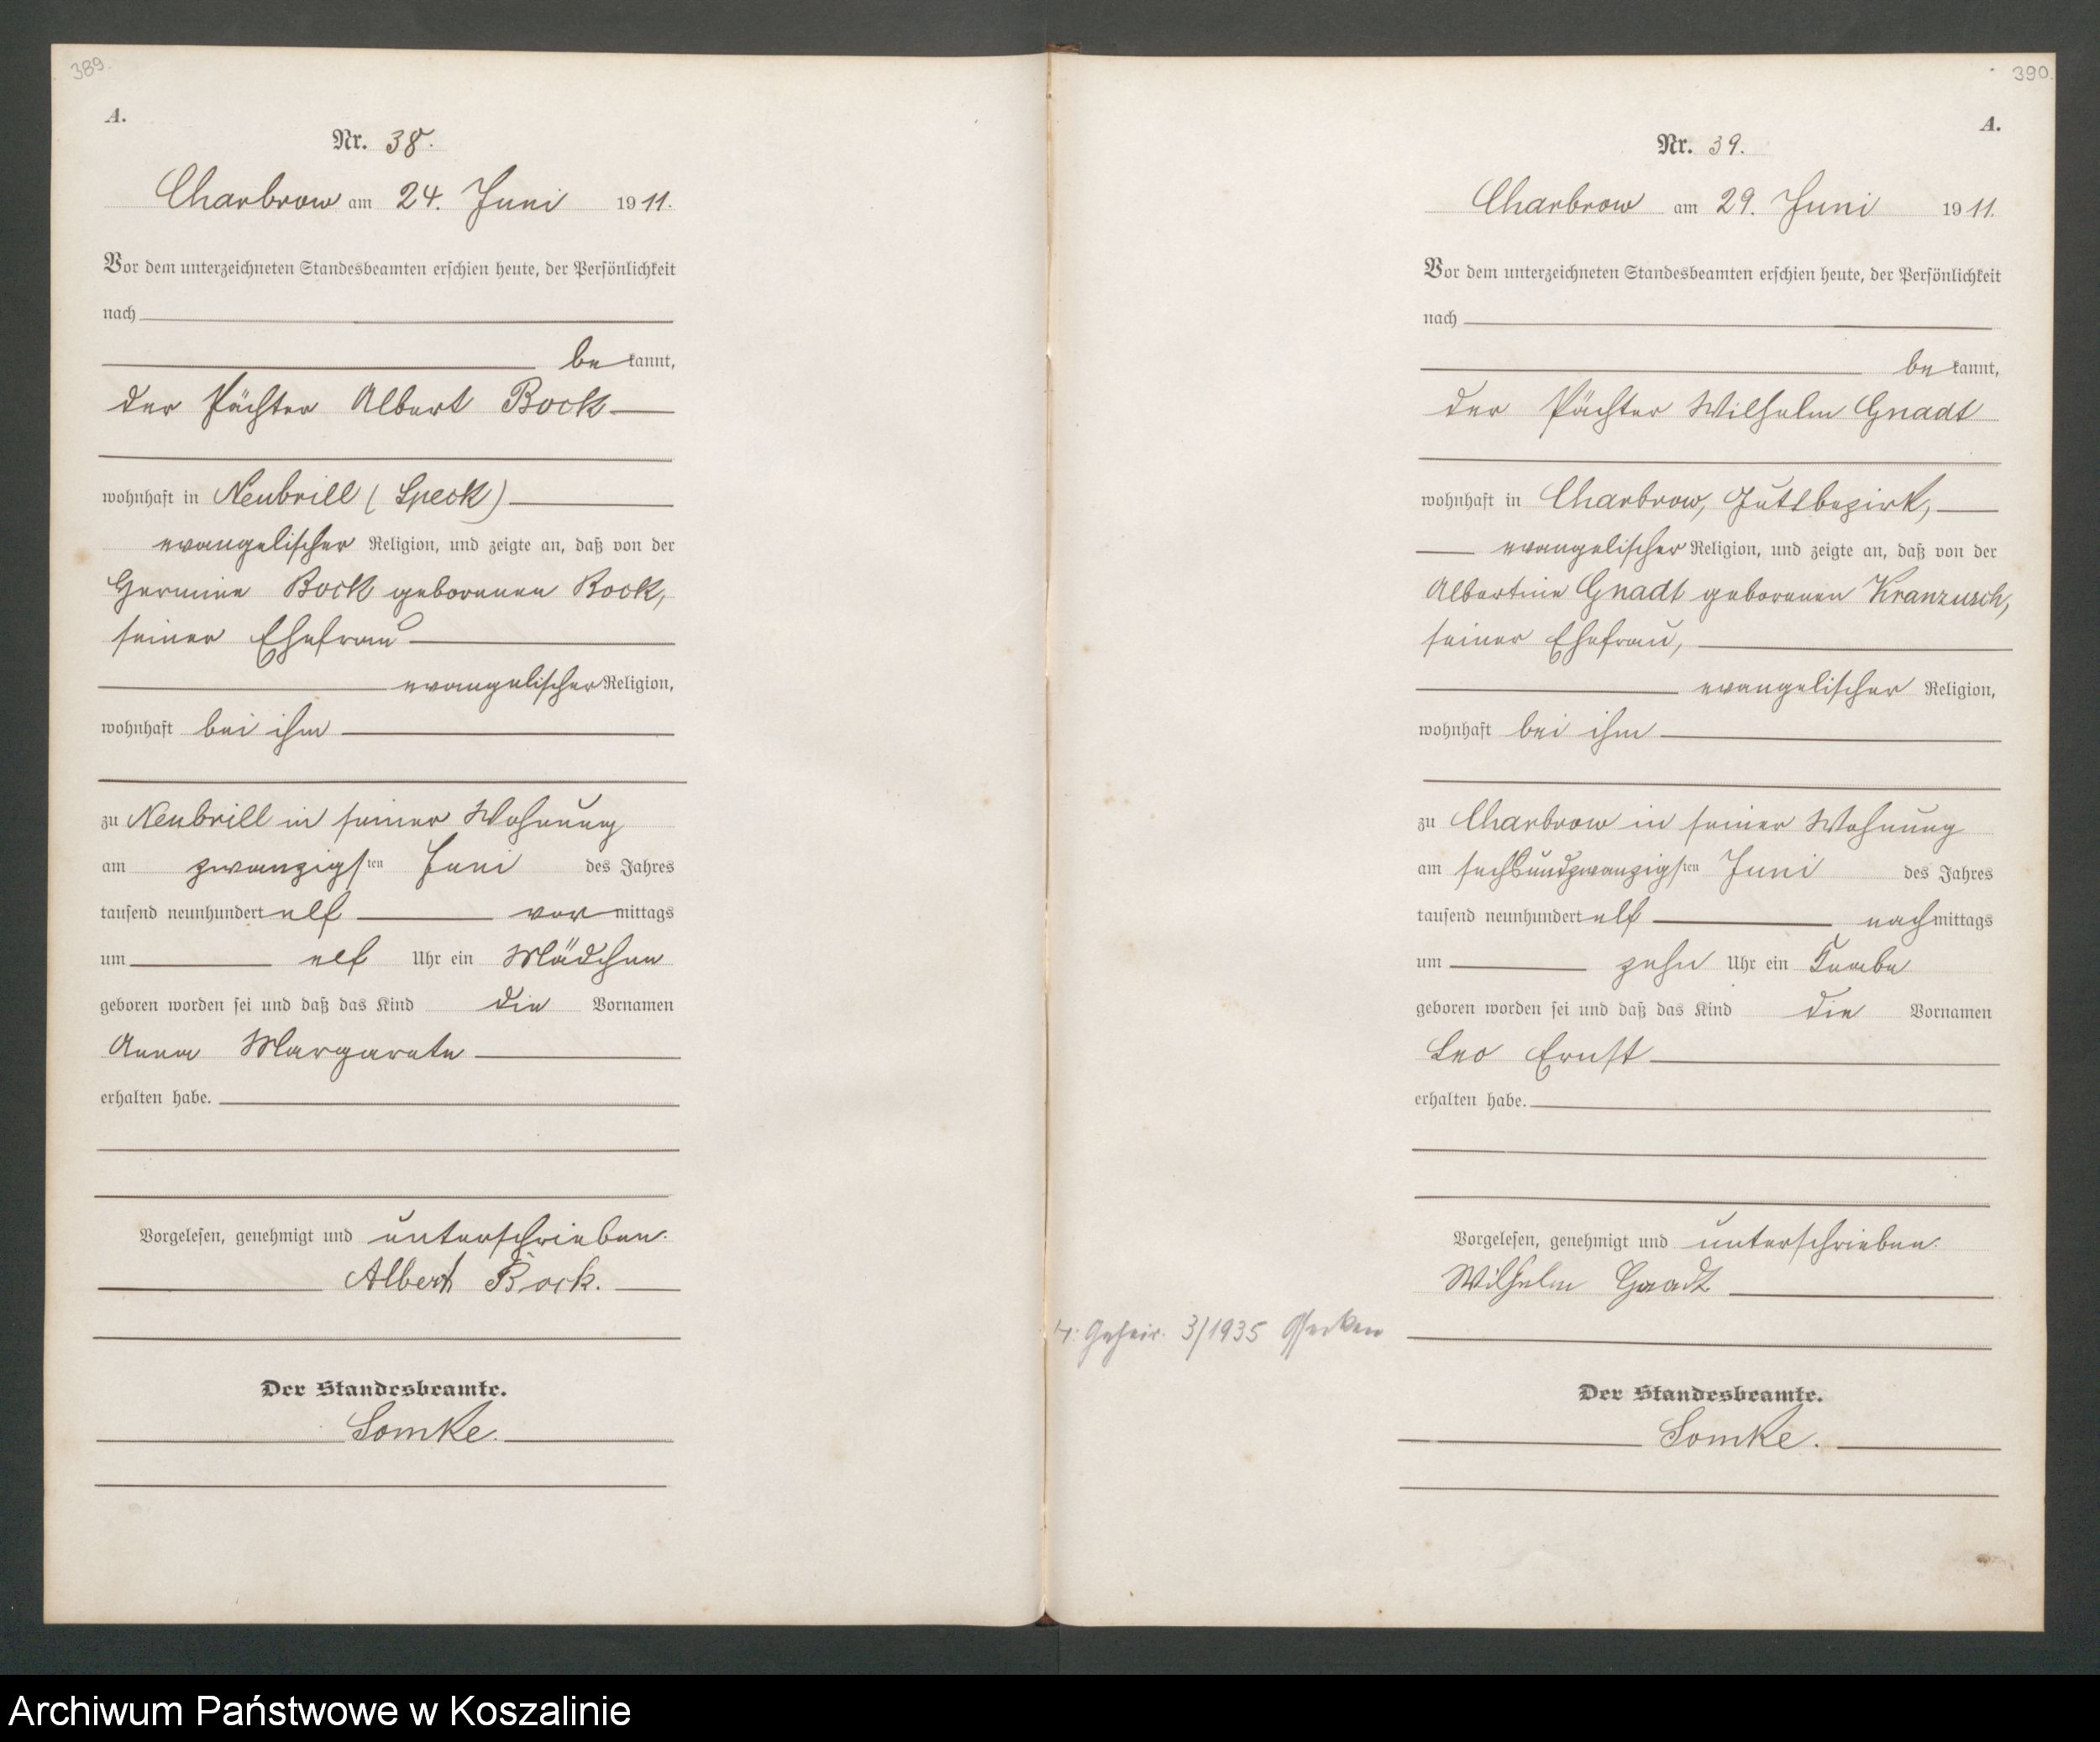 389.
A.
Nr. 38.
Charbrow am 24. Juni 1911.
Vor dem unterzeichneten Standesbeamten erschien heute, der Persönlichkeit
nach
bekannt,
der Pächter Albert Bock
wohnhaft in Neubrill (Speck)
evangelischer Religion, und zeigte an, daß von der
Hermine Bock geborenen Bock,
seiner Ehefrau
evangelischer Religion,
wohnhaft bei ihm
zu Neubrill in seiner Wohnung
am zwanzigsten Juni des Jahres
tausend neunhundert elf vormittags
um elf Uhr ein Mädchen
geboren worden sei und daß das Kind die Vornamen
Anna Margarete
erhalten habe.
Vorgelesen, genehmigt und unterschrieben.
Albert Bock.
Der Standesbeamte.
Lomke.
390.
A.
Nr. 39.
Charbrow am 29. Juni 1911.
Vor dem unterzeichneten Standesbeamten erschien heute, der Persönlichkeit
nach
bekannt,
der Pächter Wilhelm Gnadt
wohnhaft in Charbrow, Gutsbezirk,
evangelischer Religion, und zeigte an, daß von der
Albertine Gnadt geborenen Kranzusch,
seiner Ehefrau,
evangelischer Religion,
wohnhaft bei ihm
zu Charbrow in seiner Wohnung
am sechsundzwanzigsten Juni des Jahres
tausend neunhundert elf nachmittags
um zehn Uhr ein Knabe
geboren worden sei und daß das Kind die Vornamen
Leo Ernst
erhalten habe.
Vorgelesen, genehmigt und unterschrieben.
Wilhelm Gnadt
Geheir. 3/1935
Der Standesbeamte.
Lomke.
Archiwum Państwowe w Koszalinie